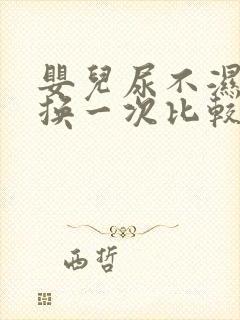 嬰兒尿不濕
換一次比較
西哲